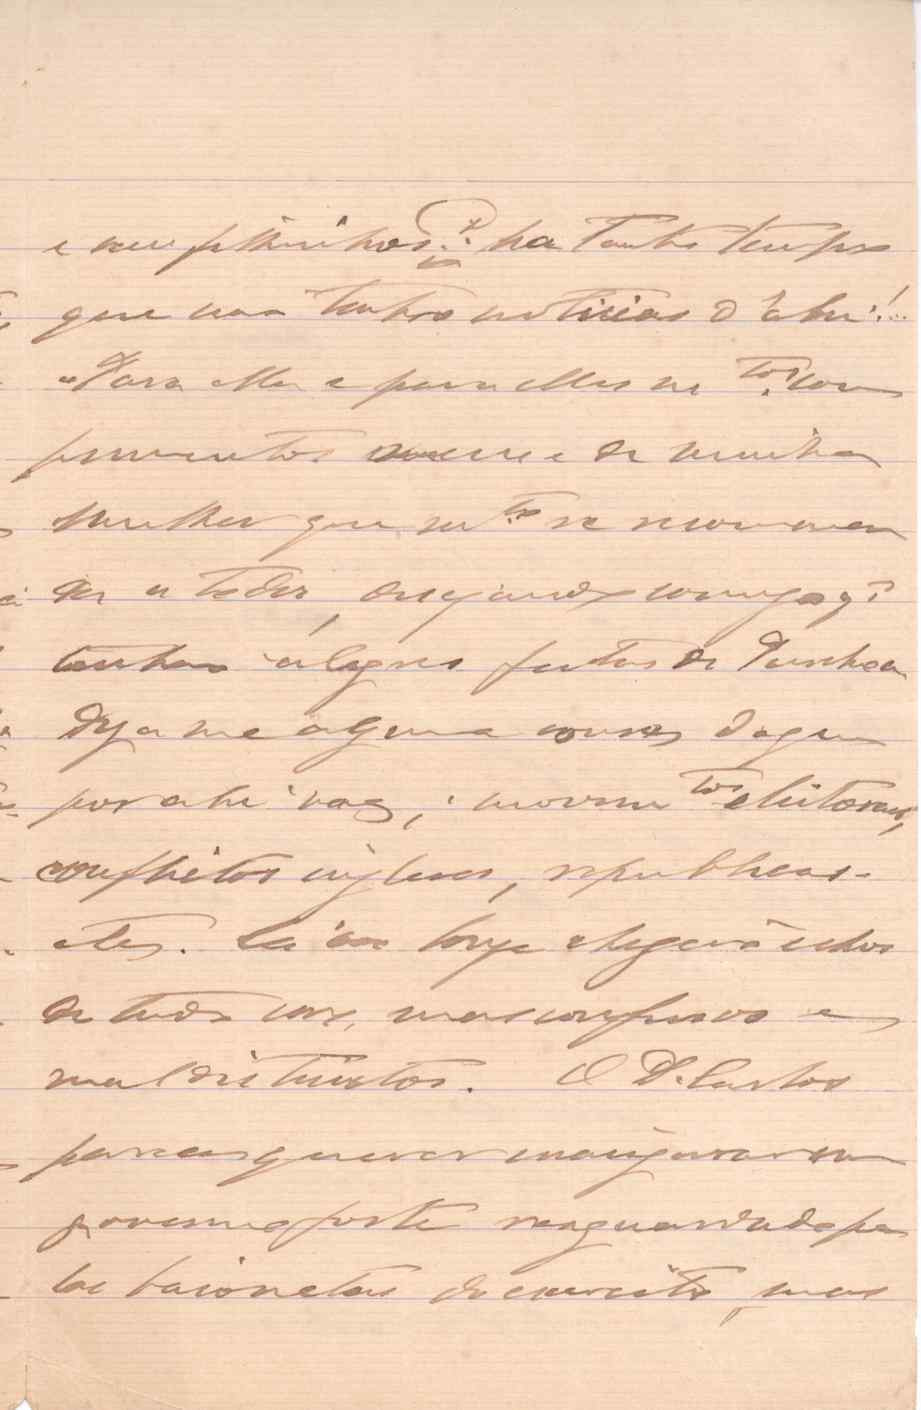 e seus filhinhos? ha tanto tempo
que não tenho noticias d'ahi!..
Para ella e para elles os tos. com
primentos meus e de minha
mulher que mto. se recommen
da a todos, desejando comigo q.
tenham alegres festas de Paschoa
Diga me alguma cousa do que
por ahi vae; movimtos eleitoraes,
conflictos inglezes, republicas
etc. Cá ao longe chegam échos
de tudo isso, mas confusos e
mal distinctos. O D. Carlos
parece querer inaugurar um
governo forte resguardado pe
las baionetas do exercito, mas